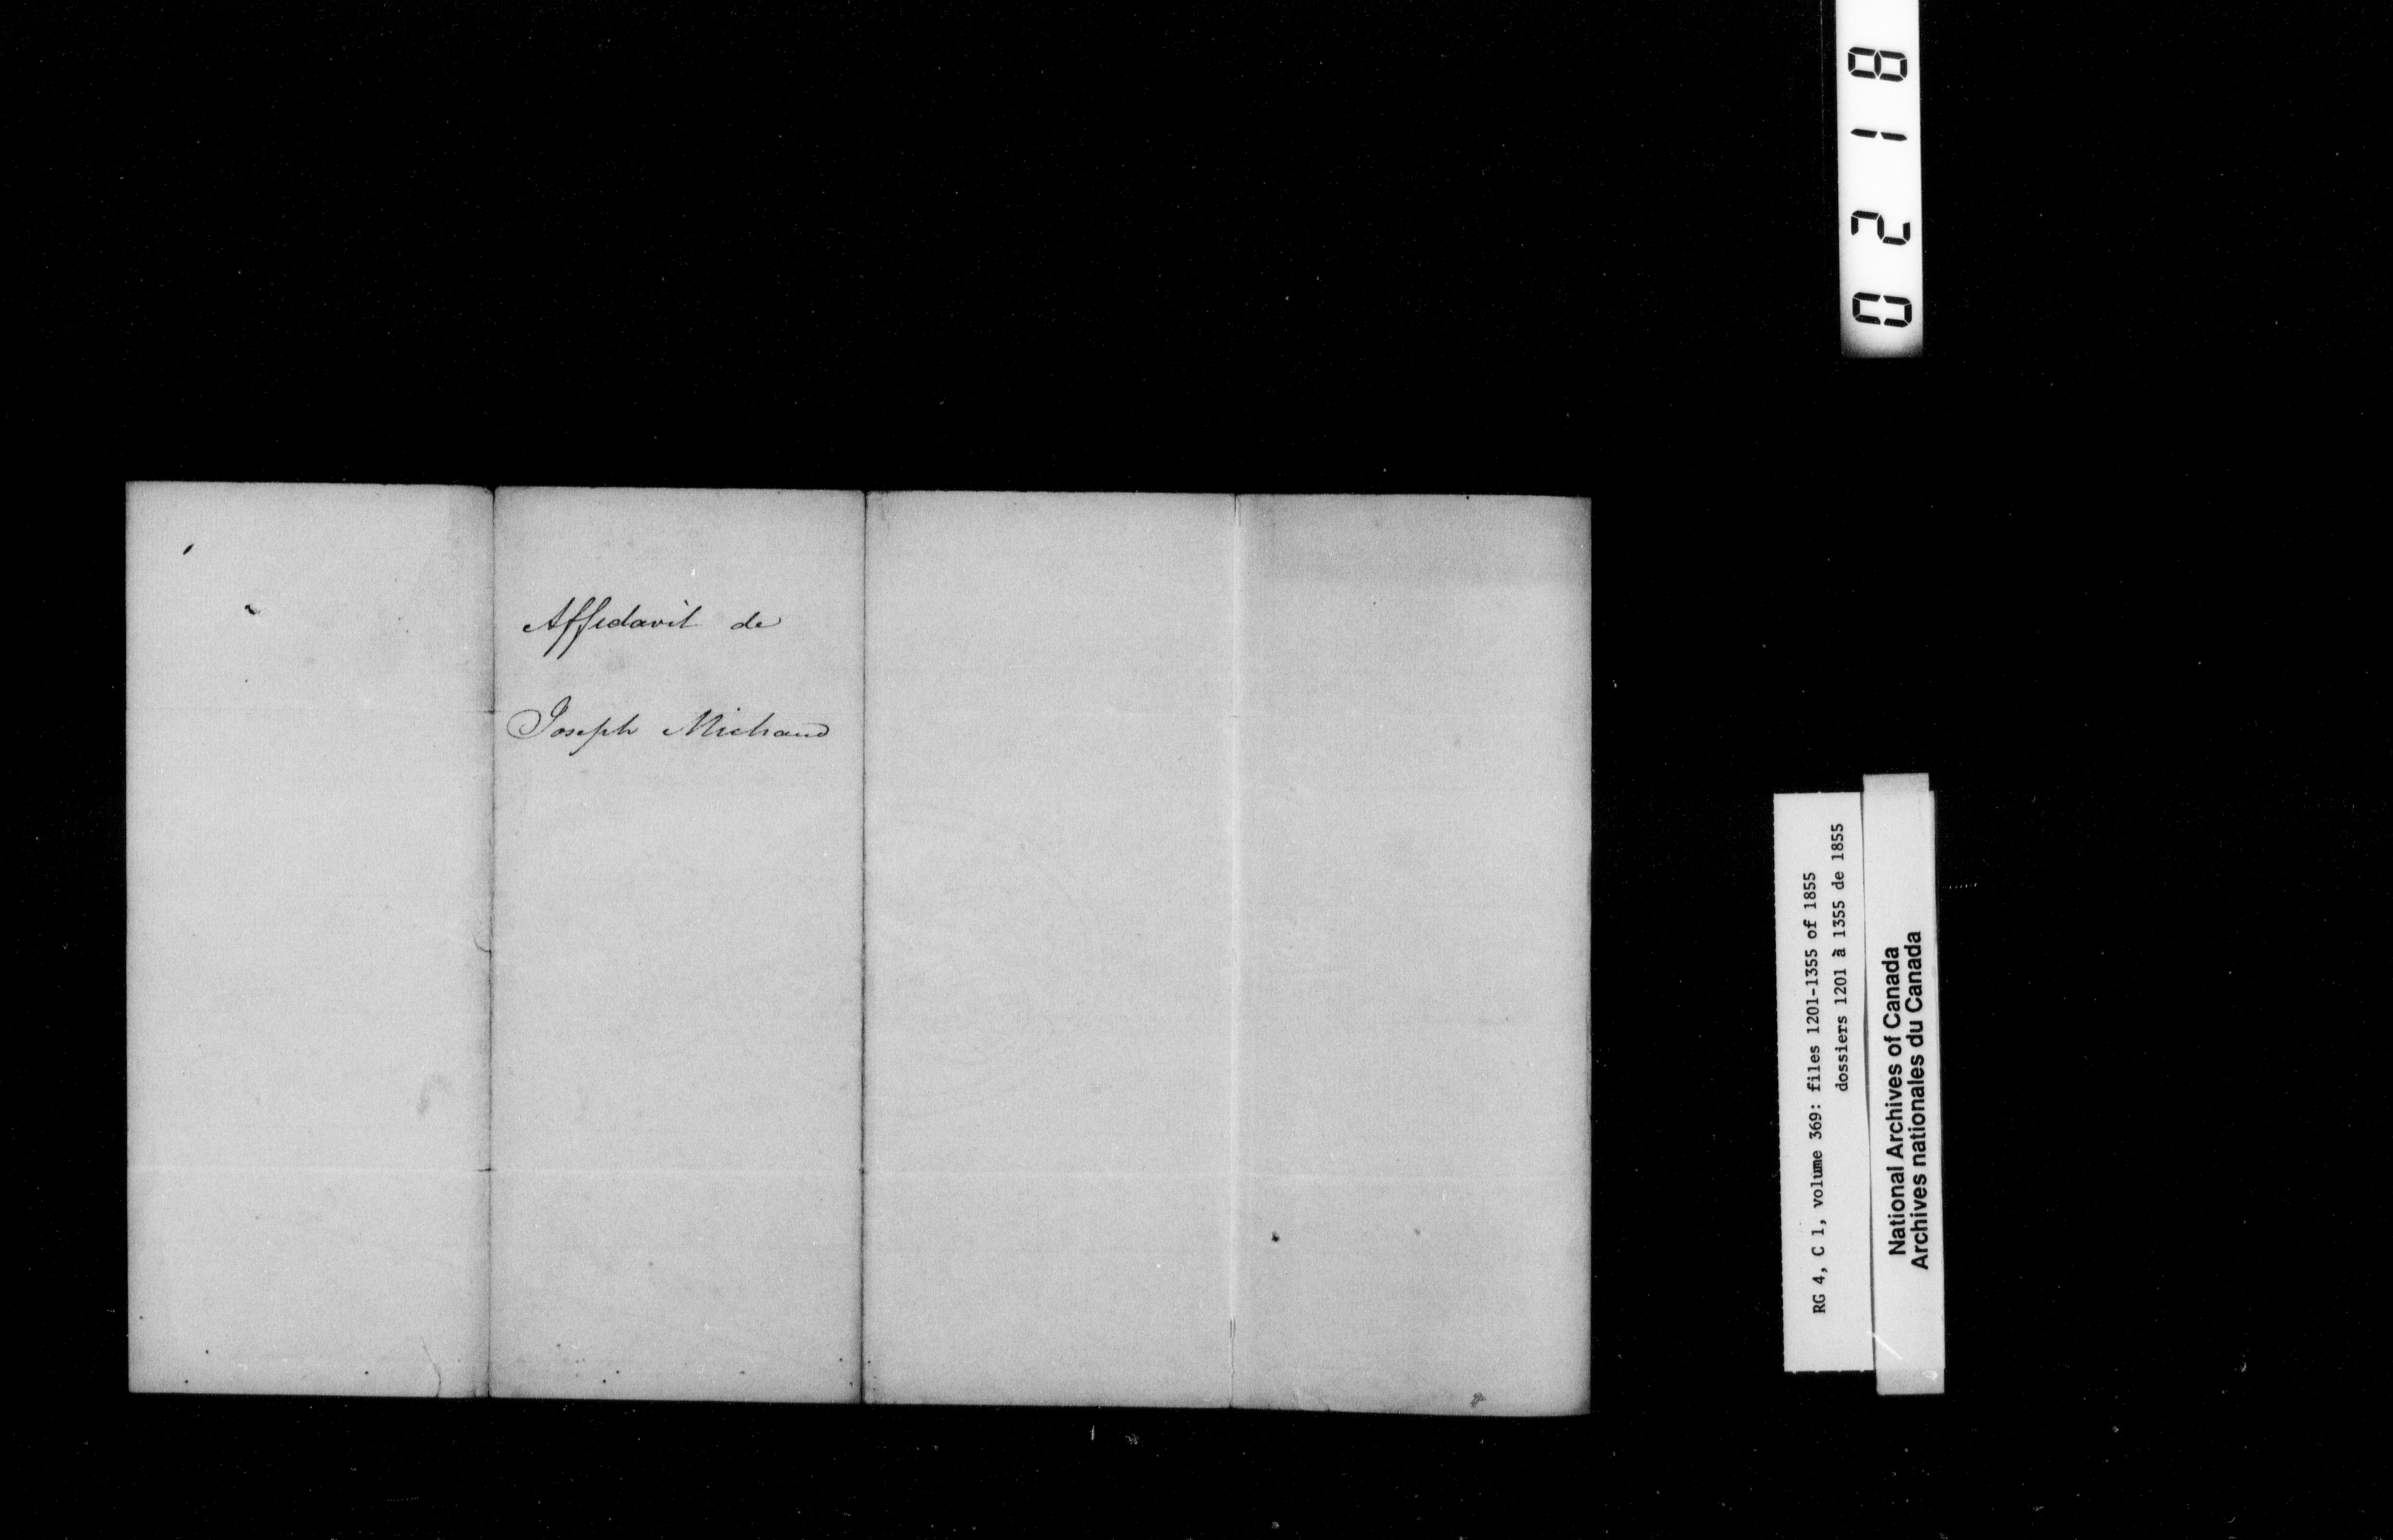 Affidavit de
Joseph Michaud
0218
RG 4, C 1, volume 369: files 1201-1355 of 1855
dossiers 1201 à 1355 de 1855
National Archives of Canada
Archives nationales du Canada